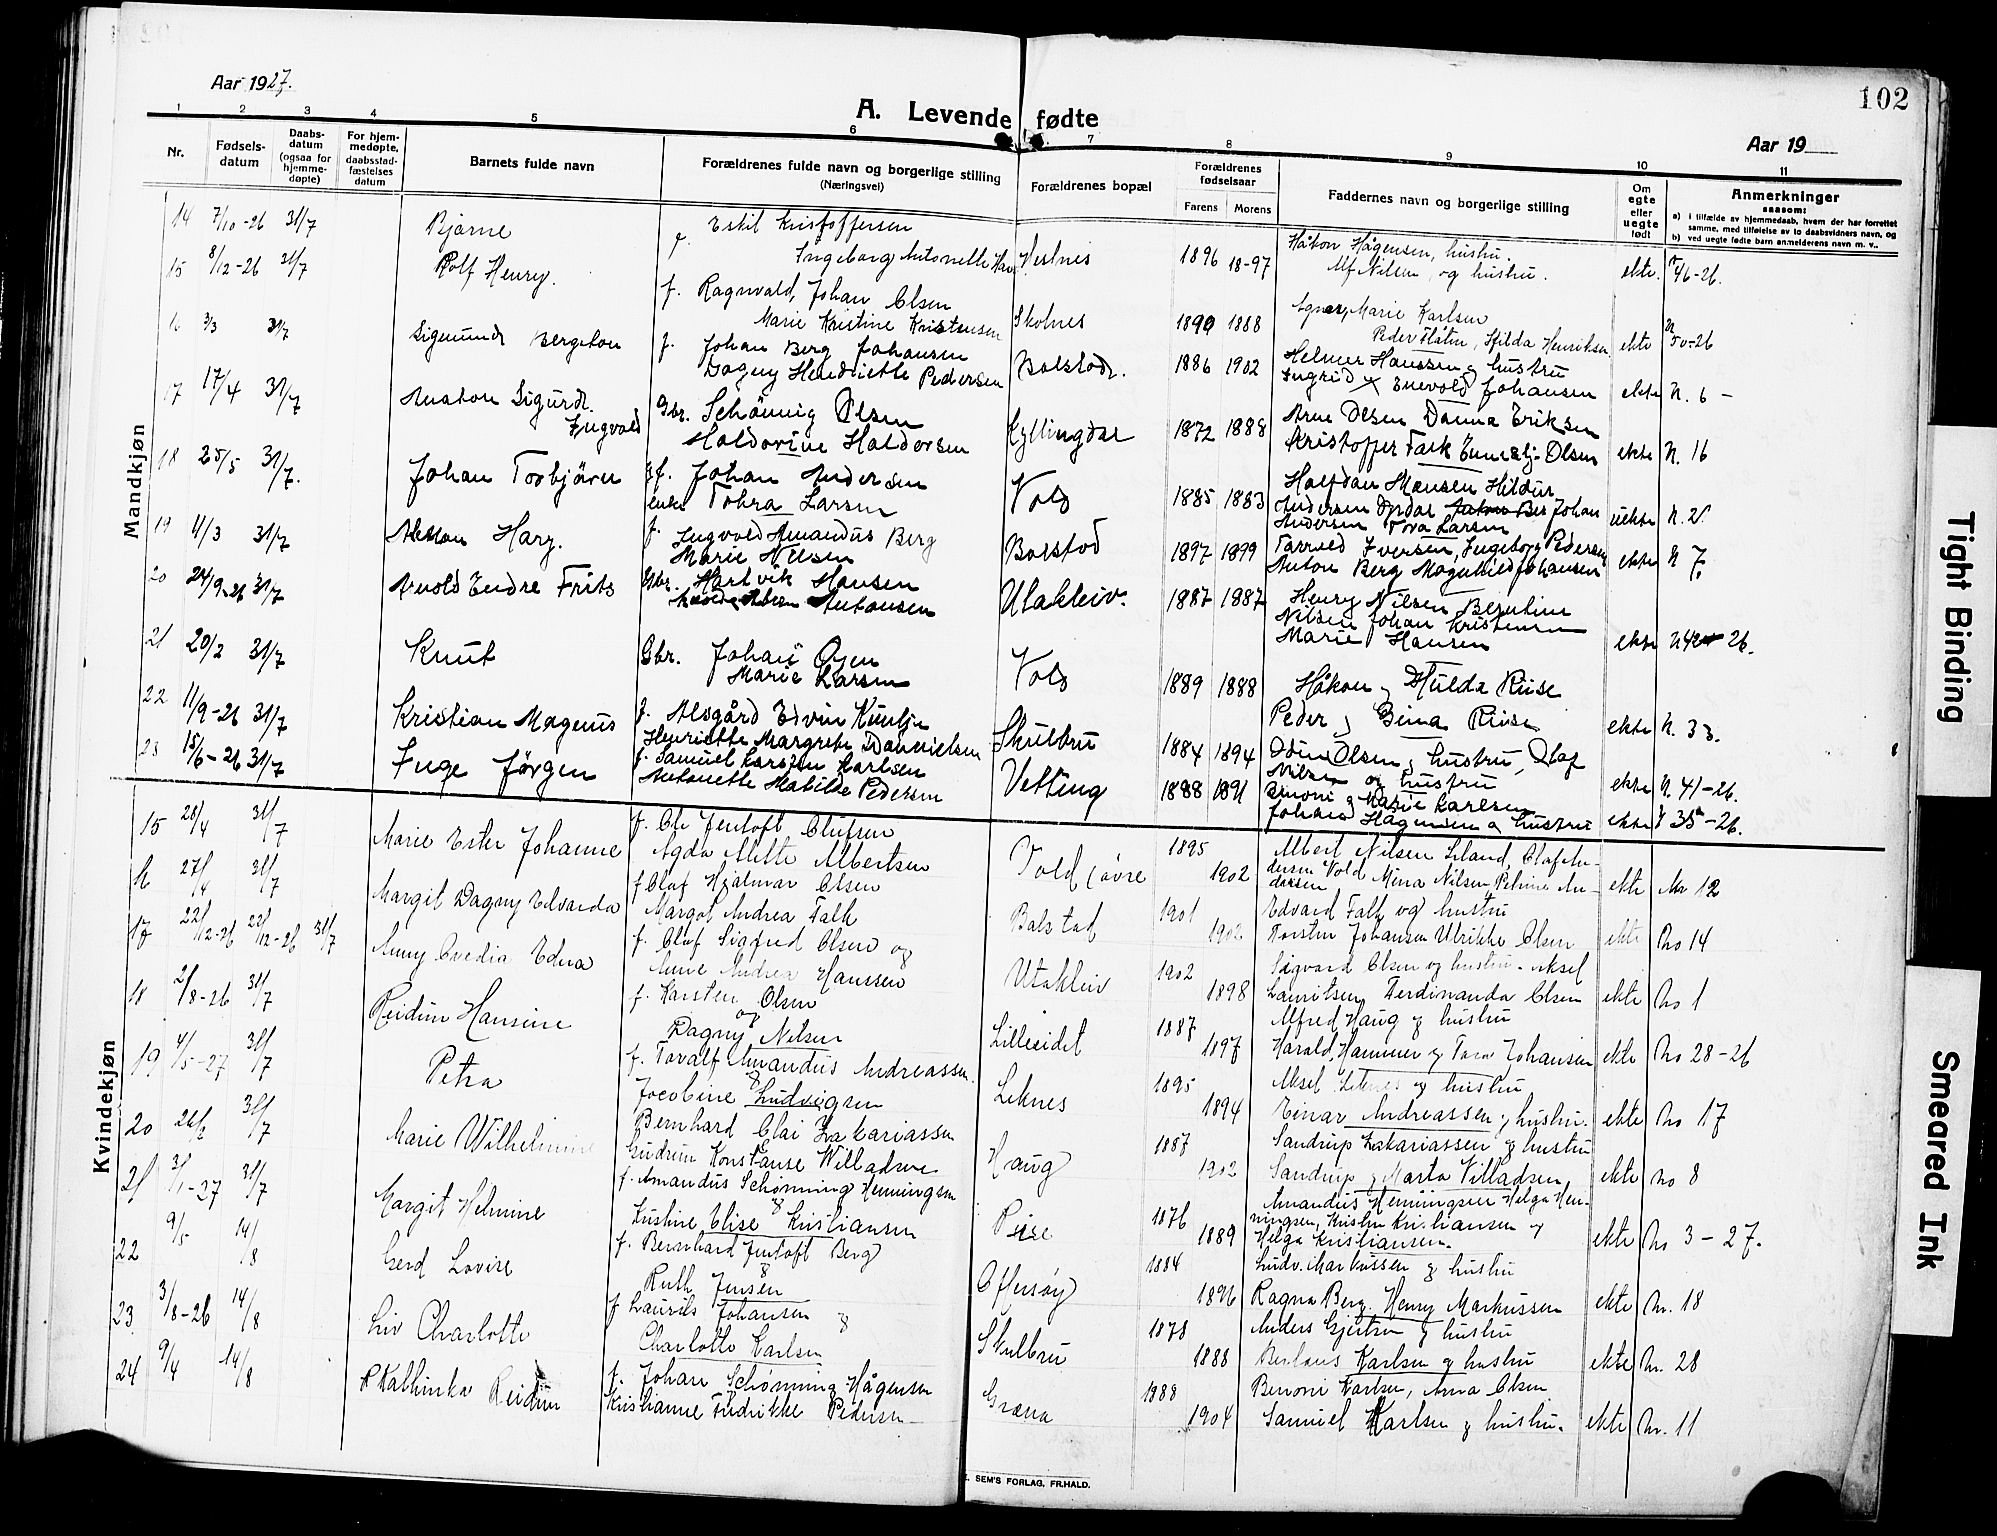 102
Aar 1927.
A. Levende fødte
Aar 19
1 2 3 4 5 6 7 8 9 10 11
Nr.
Fødsels-
datum
Daabs-
datum
(ogsaa for
hjemme-
døpte)
For hjem-
medøpte,
daabsstad-
fæstelses
datum
Barnets fulde navn
Forældrenes fulde navn og borgerlige stilling
(Næringsvei)
Forældrenes bopæl
Forældrenes
fødselsaar
Farens Morens
Faddernes navn og borgerlige stilling
Om
egte
eller
uegte
født
Anmerkninger
saasom:
a) i tilfælde av hjemmedaab, hvem der har forrettet
samme, med tilføielse av to daabsvidners navn, og
b) ved uegte fødte barn anmelderens navn m. v..
Mandkjøn
14 7/10-26 31/7 Bjarne f. Eskil Kristoffersen
Ingeborg Antonette Vestnes 1896 18-97 Håkon Hågensen, hustru.
Alf Nilsen, og hustru. ekte. 46-26.
15 8/12-26 31/7 Rolf Henry. f. Ragnvald, Johan Olsen
Marie Kristine Kristensen Skolnes 1890 1888 Agnes, Marie Karlsen
Peder Flåtin, Hilda Henriksen ekte 50-26
16 3/3 31/7 Sigmund Bergeton f. Johan Berg Johansen
Dagny Henriette Pedersen Balstad. 1886 1902 Helmer Hanssen og hustru
Ingrid & Enevold Johansen ekte N. 6 -
17 17/4 31/7 Anton Sigurd.
Ingvald Gbr. Schönnig Olsen
Haldorine Haldorsen Kyllingdal 1872 1888 Arne Olsen Danna Eriksen
Kristoffer Falk Olsen ekte N. 16
18 25/5 31/7. Johan Torbjörn gf. Johan Andersen
enke Tohra Larsen Vold 1885 1883 Halfdan Monsen Hildur
Andersen Johan
Andersen Tora Larsen uekte N. 21
19 4/3 31/7 Harg. f. Ingvald Amandus Berg
Marie Nilsen Balstad 1897 1899 Torvald Iversen, Ingeborg Pedersen
Anton Berg Magnhild Johansen ekte N 7.
20 24/9-26 31/7 Arvold Endre Frits Gbr. Hartvik Hansen
Antonsen Utakleiv. 1887 1887 Henry Nilsen Berntine
Nilsen Johan Kristensen
Marie Hansen ekte N 42-26.
21 20/2 31/7 Knut Gbr. Johan Øyen
Marie Larsen Vold 1889 1888 Håkon og Hulda Riise
Peder og Gina Riise ekte N. 33.
22 11/9-26 31/7 Kristian Magnus f. Alsgård Edvin Kuntje
Henriette Margrete Danielsen Skulbru 1884 1894 Odin Olsen og hustru, Olaf
Nilsen og hustru ekte N. 41-26.
23 15/6-26 31/7 Inge Jørgen f. Samuel Karsten Karlsen
Antonette Matilde Pedersen Vetting 1888 1891 Benoni og Marie Karlsen
Johan Hågensen og hustru ekte 35-26.
Kvindekjøn
15 28/4 31/7 Marie Ester Johanne f. Ole Jentoft Olufsen
Agda Mette Albertsen Vold, øvre 1895 1902 Albert Nilsen Leland, Olaf An-
dersen Vold Mina Nilsen, Petrine An-
dersen ekte No 12
16 27/4 31/7 Margit Dagny Edvarda f. Olaf Hjalmar Olsen
Margot Andrea Falk Balstad 1901 1902 Edvard Falk og hustru
Torsten Johansen Ulrikke Olsen ekte No 14
17 22/12-26 22/12-26 31/7 Anny Ovedia Edna f. Olaf Sigfred Olsen og
Anne Andrea Hanssen Utakleiv 1902 1898 Sigvard Olsen og hustru - Aksel
Lauritsen, Ferdinanda Olsen ekte No 1
18 2/8-26 31/7 Reidun Hansine f. Karsten Olsen
og
Dagny Nilsen Lilleeidet 1887 1897 Alfred Haug og hustru
Harald Hammer og Tora Johansen ekte No 28-26
19 4/5-27 31/7 Petra f. Toralf Amandus Andreassen.
Jacobine Ludvigsen Leknes 1895 1894 Aksel Leknes og hustru
Einar Andreassen og hustru. ekte No 17
20 26/2 31/7 Marie Wilhelmine Bernhard Olai Zakariassen
Gudrun Konstanse Willadsen Haug 1887 1902 Sandrup Zakariassen og hustru
Sandrup og Marta Villadsen ekte No 8
21 3/1-27 31/7 Margit Helmine f. Amandus Schønning Henningsen
Kristine Elise Kristiansen Riise 1876 1889 Amandus Henningsen Helga Hen-
ningsen, Kristen Kristiansen og
Helga Kristiansen. ekte No 3-27.
22 9/5 14/8 Gerd Lovise f. Bernhard Jentoft Berg
Ruth Jensen Offersøy 1884 1896 Ludv. Markussen og hustru
Ragna Berg. Henry Markussen ekte Nr. 18
23 3/8-26 14/8 Liv Charlotte f. Laurits Johansen og
Charlotte Karlsen Skulbru 1878 1888 Anders Gjertsen og hustru
Karlsen og hustru ekte Nr. 28
24 9/4 14/8 Kathinka Reidun f. Johan Schønning Hågensen
Kristianne Fredrikke Pedersen Græna 1888 1904 Benoni Karlsen, Anna Olsen
Samuel Karlsen og hustru. ekte Nr. 11
SEM'S FORLAG, FR.HALD.
Tight Binding
Smeared Ink